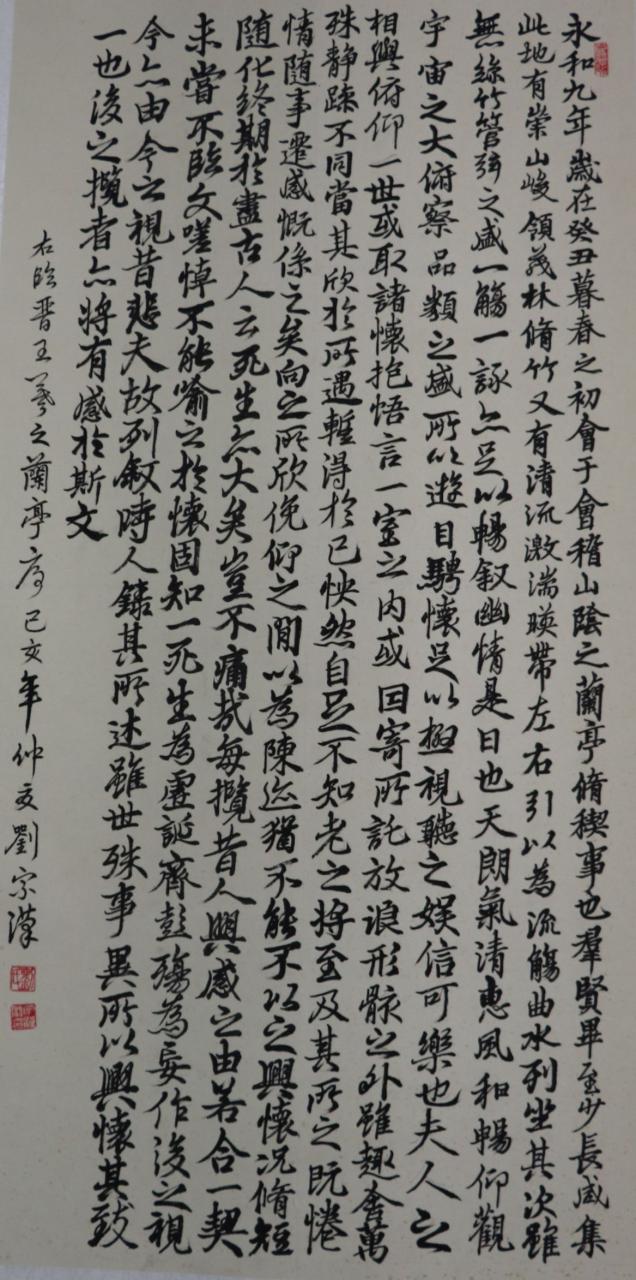 永和九年歲在癸丑暮春之初會于會稽山陰之蘭亭脩稧事也羣賢畢至少長咸集
此地有崇山峻領茂林脩竹又有清流激湍暎帶左右引以為流觴曲水列坐其次雖
無絲竹管弦之盛一觴一詠亦足以暢叙幽情是日也天朗氣清惠風和暢仰觀
宇宙之大俯察品類之盛所以遊目騁懷足以極視聽之娛信可樂也夫人之
相與俯仰一世或取諸懷抱悟言一室之内或因寄所託放浪形骸之外雖趣舍萬
殊静躁不同當其欣於所遇暫得於己怏然自足不知老之將至及其所之既惓
情隨事遷感慨係之矣向之所欣俛仰之閒以為陳迹猶不能不以之興懷况脩短
隨化終期於盡古人云死生亦大矣豈不痛哉每攬昔人興感之由若合一契
未嘗不臨文嗟悼不能喻之於懷固知一死生為虛誕齊彭殤為妄作後之視
今亦由今之視昔悲夫故列叙時人錄其所述雖世殊事異所以興懷其致
一也後之攬者亦將有感於斯文
右臨晉王羲之蘭亭序己亥年仲夏劉宗漢